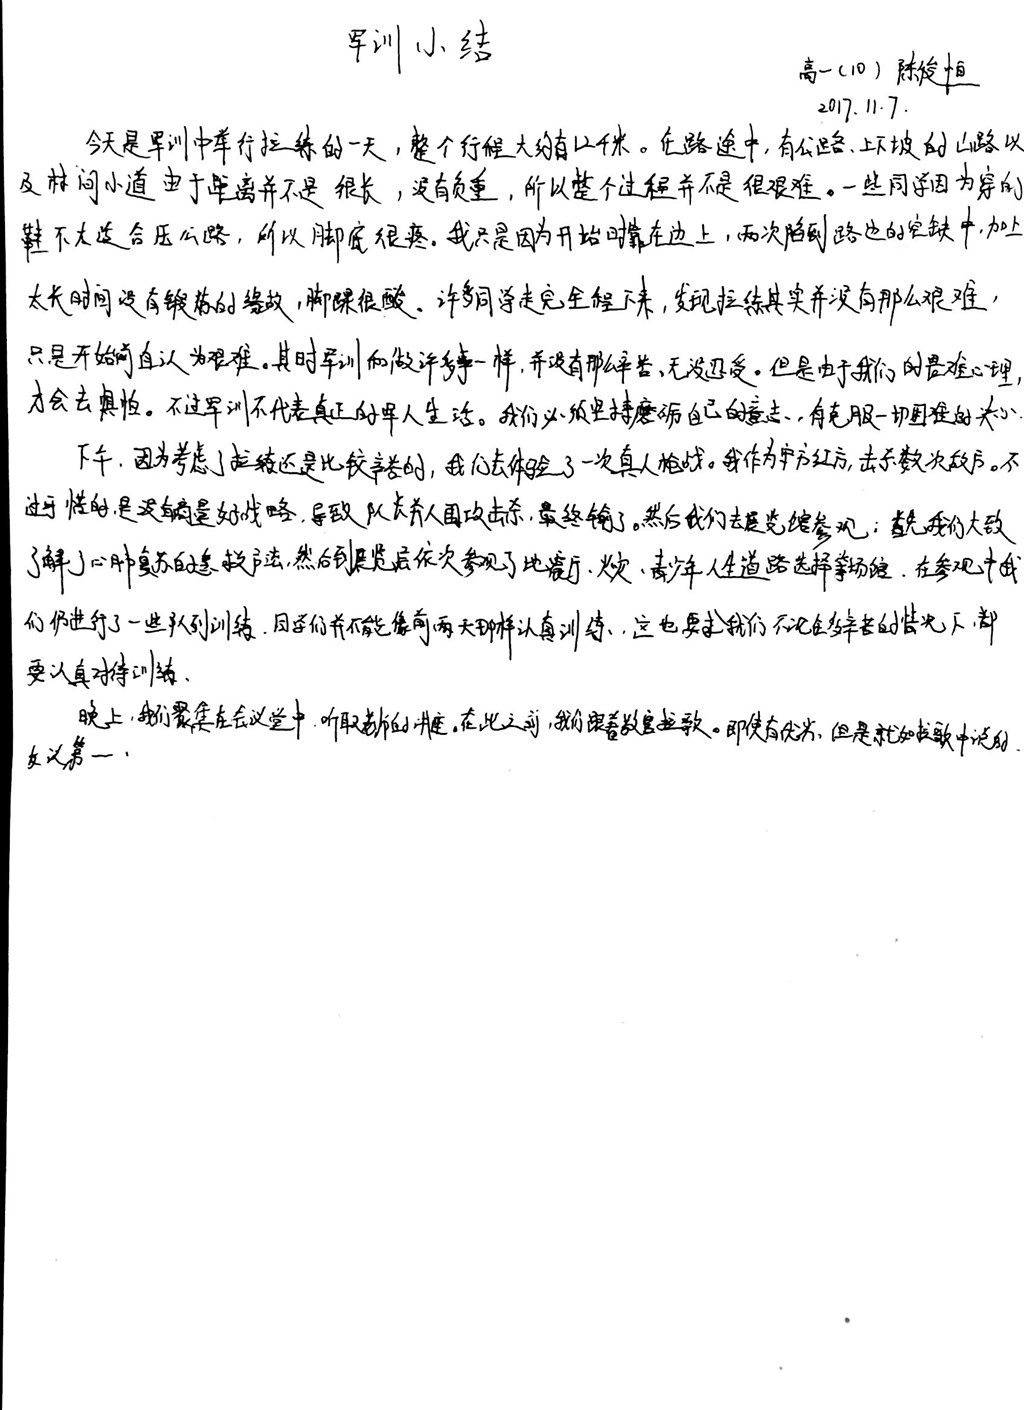 军训小结
高一(10) 陈俊恒
2017.11.7.
今天是军训中举行拉练的一天，整个行程大约有12千米。在路途中，有公路、上下坡的山路以
及林间小道 由于距离并不是很长，没有负重，所以整个过程并不是很艰难。一些同学因为穿的
鞋不太适合压公路，所以脚底很疼。我只是因为开始时靠在边上，两次陷到路边的空缺中，加上
太长时间没有锻炼的缘故，脚踝很酸。许多同学走完全程下来，发现拉练其实并没有那么艰难，
只是开始前自认为艰难。其时军训和做许多事一样，并没有那么辛苦、无没忍受。但是由于我们的畏难心理，
才会去惧怕。不过军训不代表真正的军人生活。我们必须坚持磨砺自己的意志，有克服一切困难的决心.
下午，因为考虑了拉练还是比较辛苦的，我们去体验了一次真人枪战。我作为 方红方，击杀数次敌方。不
过可惜的是没有商量好战略，导致队长 人围攻击杀，最终输了。然后我们去展览馆参观；首先我们大致
了解了心肺复苏的急救方法，然后到展览层依次参观了地震厅、火灾、青少年人生道路选择等场馆. 在参观中我
们仍进行了一些队列训练. 同学们并不能像前两天那样认真训练，这也要求我们不论多辛苦的情况下，都
要认真对待训练.
晚上，我们聚集在会议堂中，听取 的讲座。在此之前，我们跟着教官拉歌。即使有伤，但是就如拉歌中说的.
友谊第一.